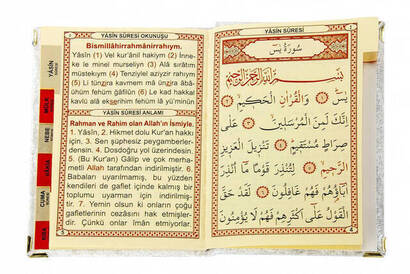 YÂSÎN SÛRESİ OKUNUŞU
Bismillâhirrahmânirrahıym.
Yâsîn (1) Vel kur'ânil hakiym (2) İnne-
ke le minel murseliyn (3) Alâ sırâtım
müstekıym (4) Tenziylel aziyzir rahıym
(5) Li tünzira kavmem mâ ünzira âbâ-
ühüm fehüm ğâfilûn (6) Le kad hakkal
kavlü alâ ekserihim fehüm lâ yü'minûn
YÂSÎN SÛRESİ ANLAMI
Rahman ve Rahim olan Allah'ın İsmiyle.
1. Yâsîn, 2. Hikmet dolu Kur'an hakkı
için, 3. Sen şüphesiz peygamberler-
densin. 4. Dosdoğru yol üzerindesin.
5. (Bu Kur'an) Gâlip ve çok merha-
metli Allah tarafından indirilmiştir. 6.
Babaları uyarılmamış, bu yüzden
kendileri de gaflet içinde kalmış bir
toplumu uyarman için indirilmiş-
tir. 7. Yemin olsun ki onların çoğu
gafletlerinin cezasını hak etmişler-
dir. Çünkü onlar îman etmiyorlar.
5
YÂSİN
MÜLK
NEBE
CUMA
YÂSİN SÛRESİ
سُورَةُ يٰسٓ
بِسْمِ اللّٰهِ الرَّحْمٰنِ الرَّحِيمِ
يٰسٓ ۝١ وَالْقُرْاٰنِ الْحَكِيمِ ۝٢
اِنَّكَ لَمِنَ الْمُرْسَلِينَ ۝٣ عَلٰى
صِرَاطٍ مُسْتَقِيمٍ ۝٤ تَنْزِيلَ الْعَزِيزِ
الرَّحِيمِ ۝٥ لِتُنْذِرَ قَوْمًا مَا اُنْذِرَ
اٰبَاؤُهُمْ فَهُمْ غَافِلُونَ ۝٦ لَقَدْ حَقَّ
الْقَوْلُ عَلٰى اَكْثَرِهِمْ فَهُمْ لَا يُؤْمِنُونَ
4